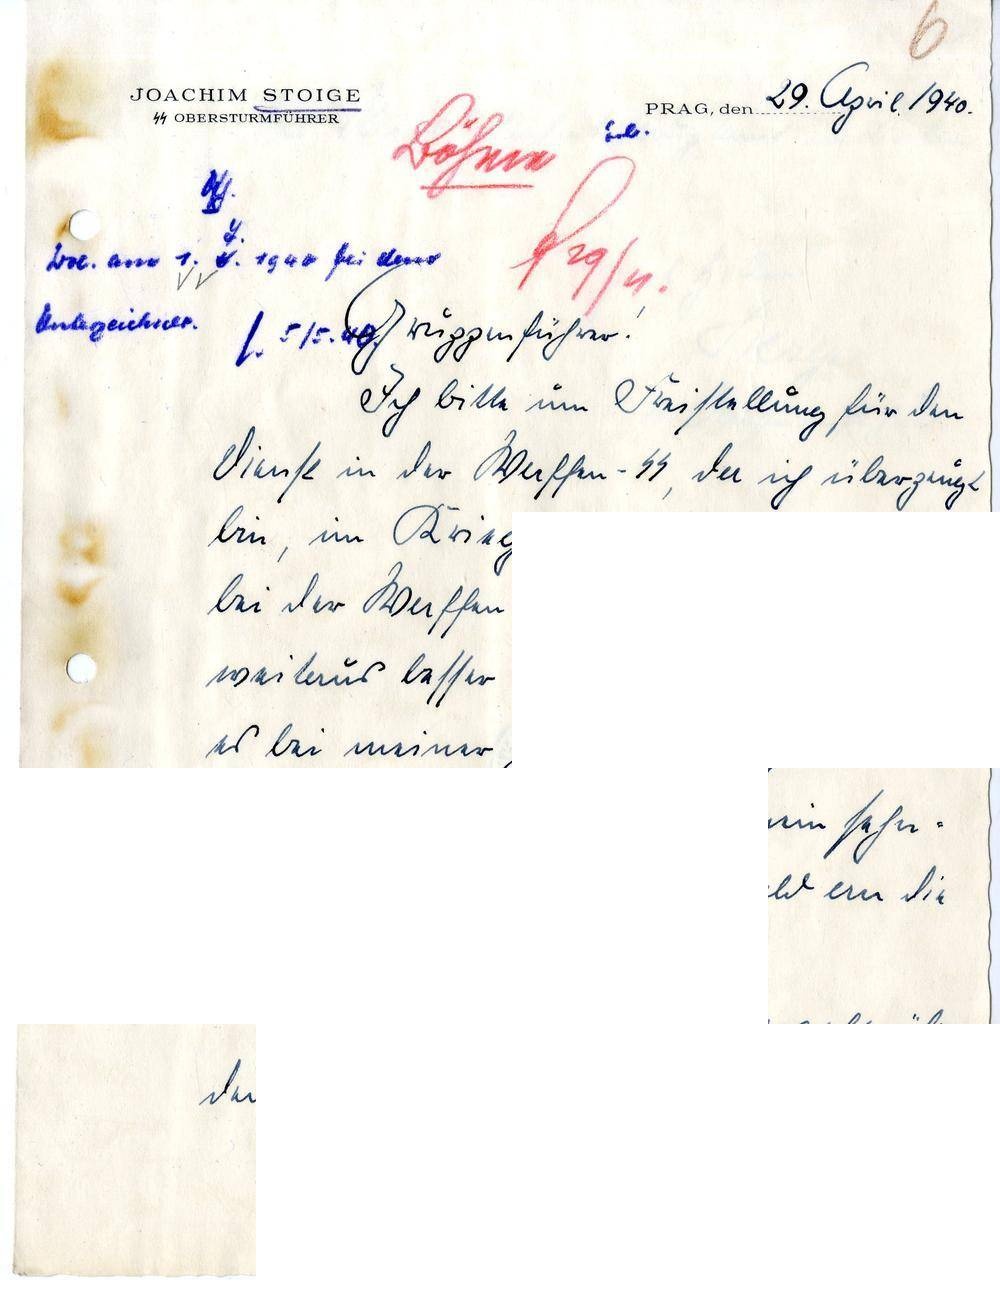 6
JOACHIM STOIGE
SS OBERSTURMFÜHRER
PRAG, den 29. April 1940.
Böhme
29/4.
1. 1940 bei dem
Unterzeichner. 5/5. 40.
Gruppenführer!
Ich bitte um Freistellung für den
Dienst in der Waffen-SS, da ich überzeugt
bin, im Krieg
bei der Waffen
weitaus besser
es bei meiner
mein sehn-
ald an die
der